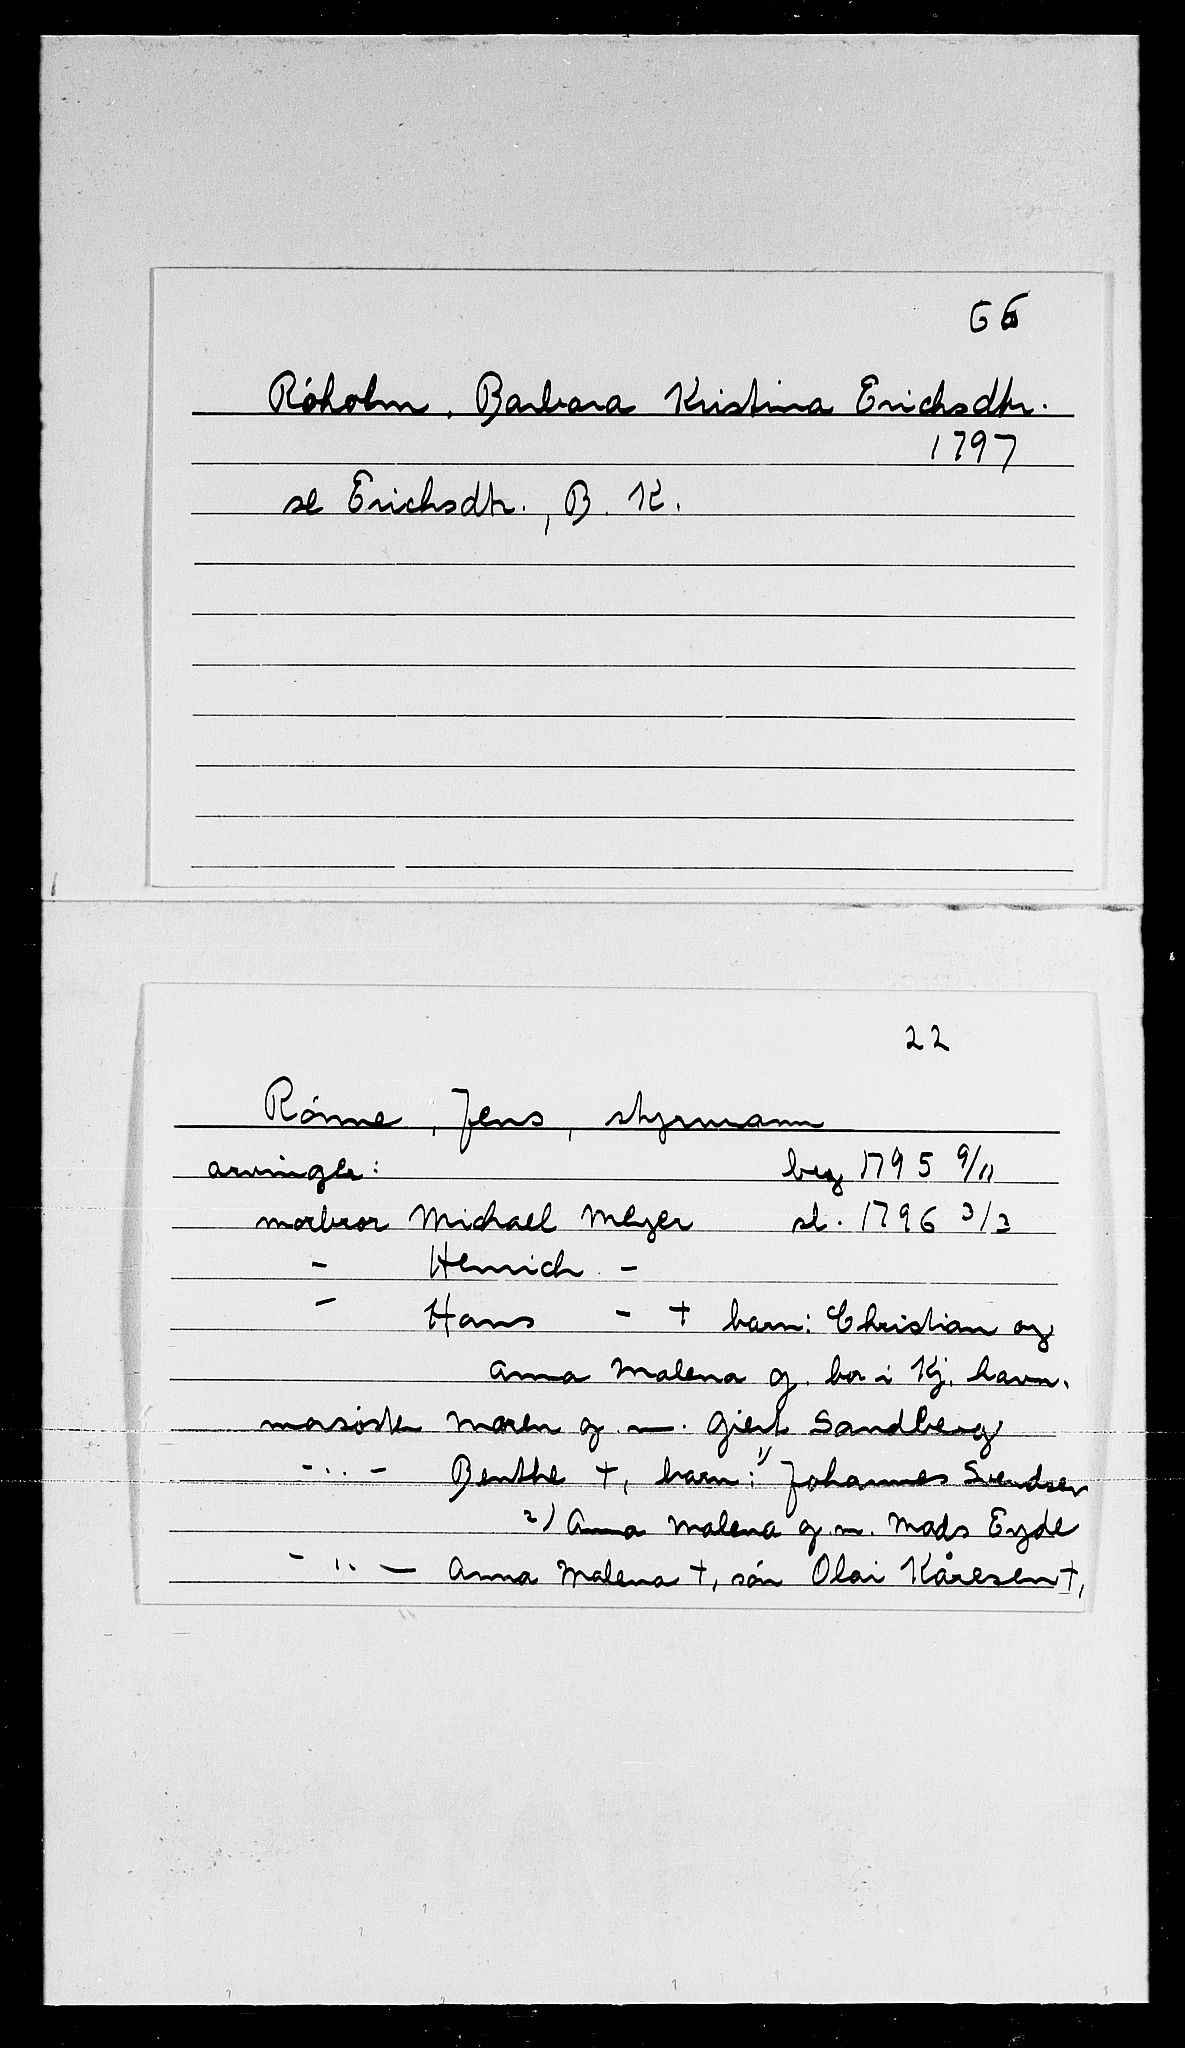 66
Röholm, Barbara Kristina Erichsdtr.
1797
se Erichsdtr., B. K.
22
Rönne, Jens, styrmann
arvinger: beg 1795 9/11
morbror Michael Meyer sl. 1796 3/3
- Henrich -
- Hans - + barn: Christian og
Anna Malena g. bor i Kj. havn.
morsöster Maren g. m. Giert Sandberg
-..- Benthe +, barn: 1) Johannes Svendsen
2) Anna Malena g. m. Mads Eyde
-..- Anna Malena +, sön Olai Kåresen +,